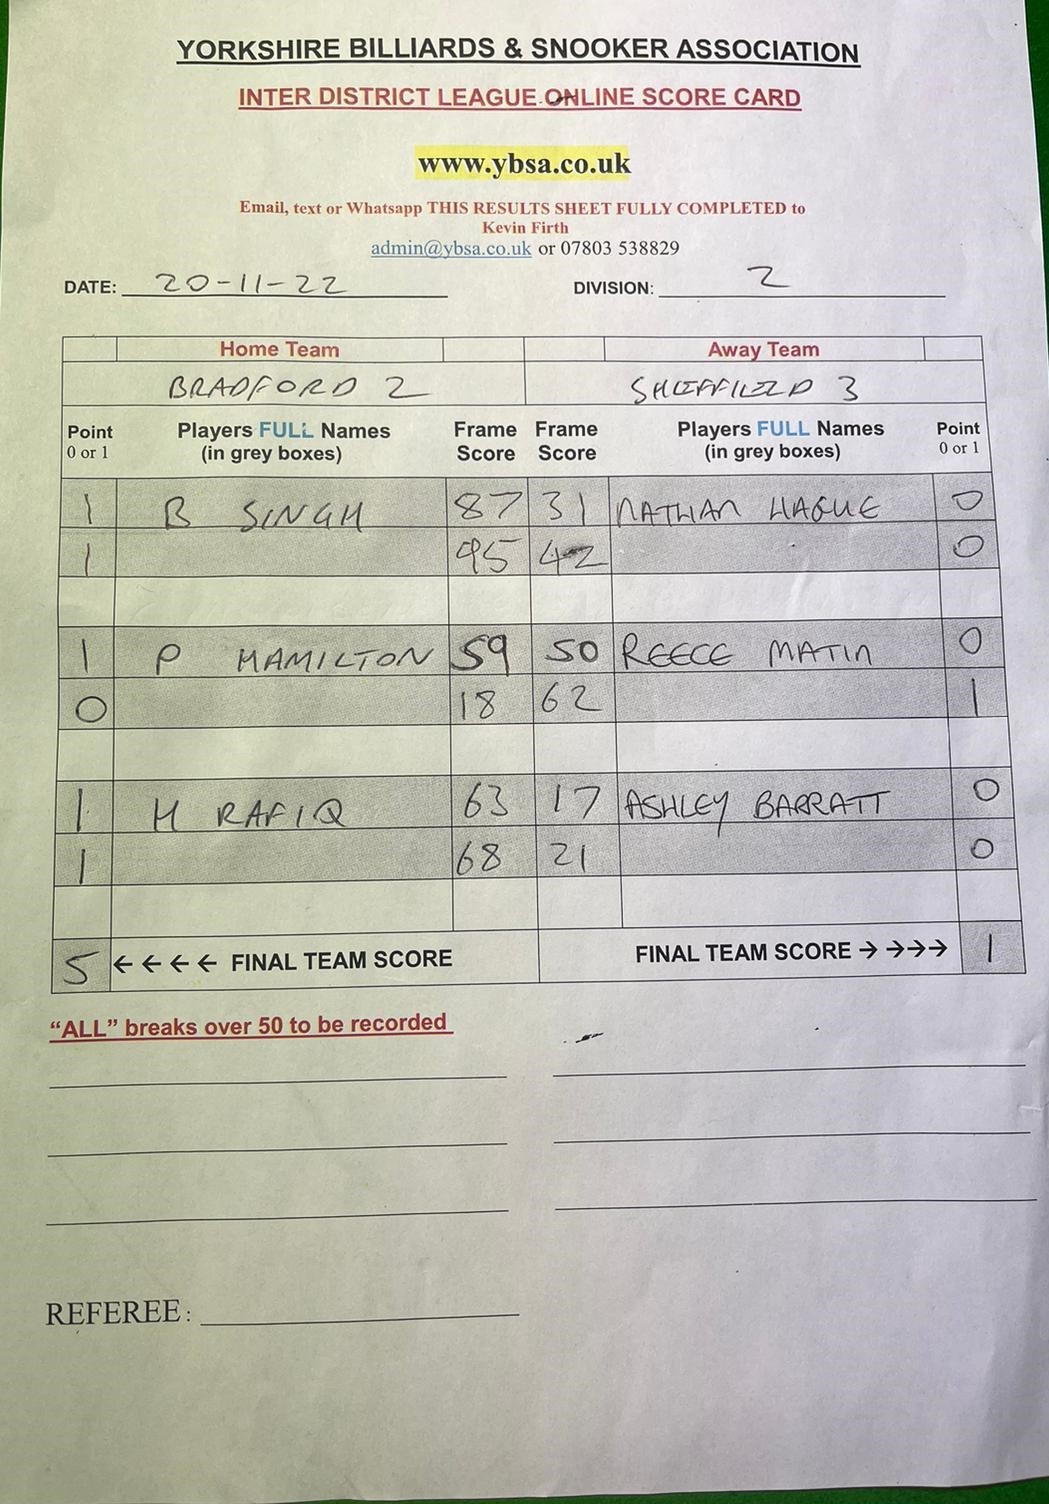 YORKSHIRE BILLIARDS & SNOOKER ASSOCIATION
INTER DISTRICT LEAGUE ONLINE SCORE CARD
www.ybsa.co.uk
Email, text or Whatsapp THIS RESULTS SHEET FULLY COMPLETED to
Kevin Firth
admin@ybsa.co.uk or 07803 538829
DATE: 20-11-22 DIVISION: 2
Home Team Away Team
BRADFORD 2 SHEFFIELD 3
Point Players FULL Names Frame Frame Players FULL Names Point
0 or 1 (in grey boxes) Score Score (in grey boxes) 0 or 1
1 B SINGH 87 31 NATHAN HAGUE 0
1 95 42 0
1 P HAMILTON 59 50 REECE MATIN 0
0 18 62 1
1 H RAFIQ 63 17 ASHLEY BARRATT 0
1 68 21 0
5 ←←←← FINAL TEAM SCORE FINAL TEAM SCORE →→→→ 1
“ALL” breaks over 50 to be recorded
REFEREE: